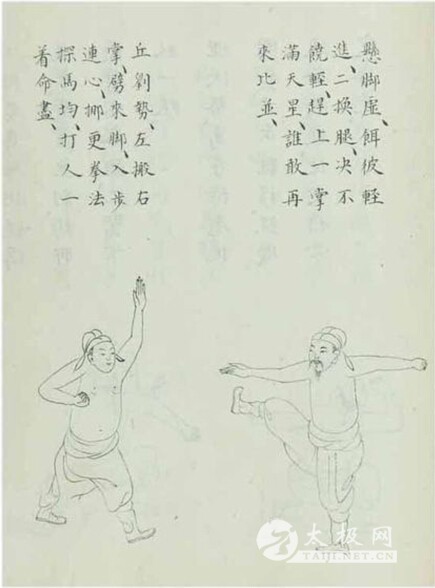 懸脚虛、餌彼輕
進、二換腿、决不
饒輕、趕上一掌
滿天星、誰敢再
來比並、
丘劉勢、左搬右
掌、劈來脚、入步
連心、挪更拳法
探馬均、打人一
着命盡、
太极网
TAIJI.NET.CN